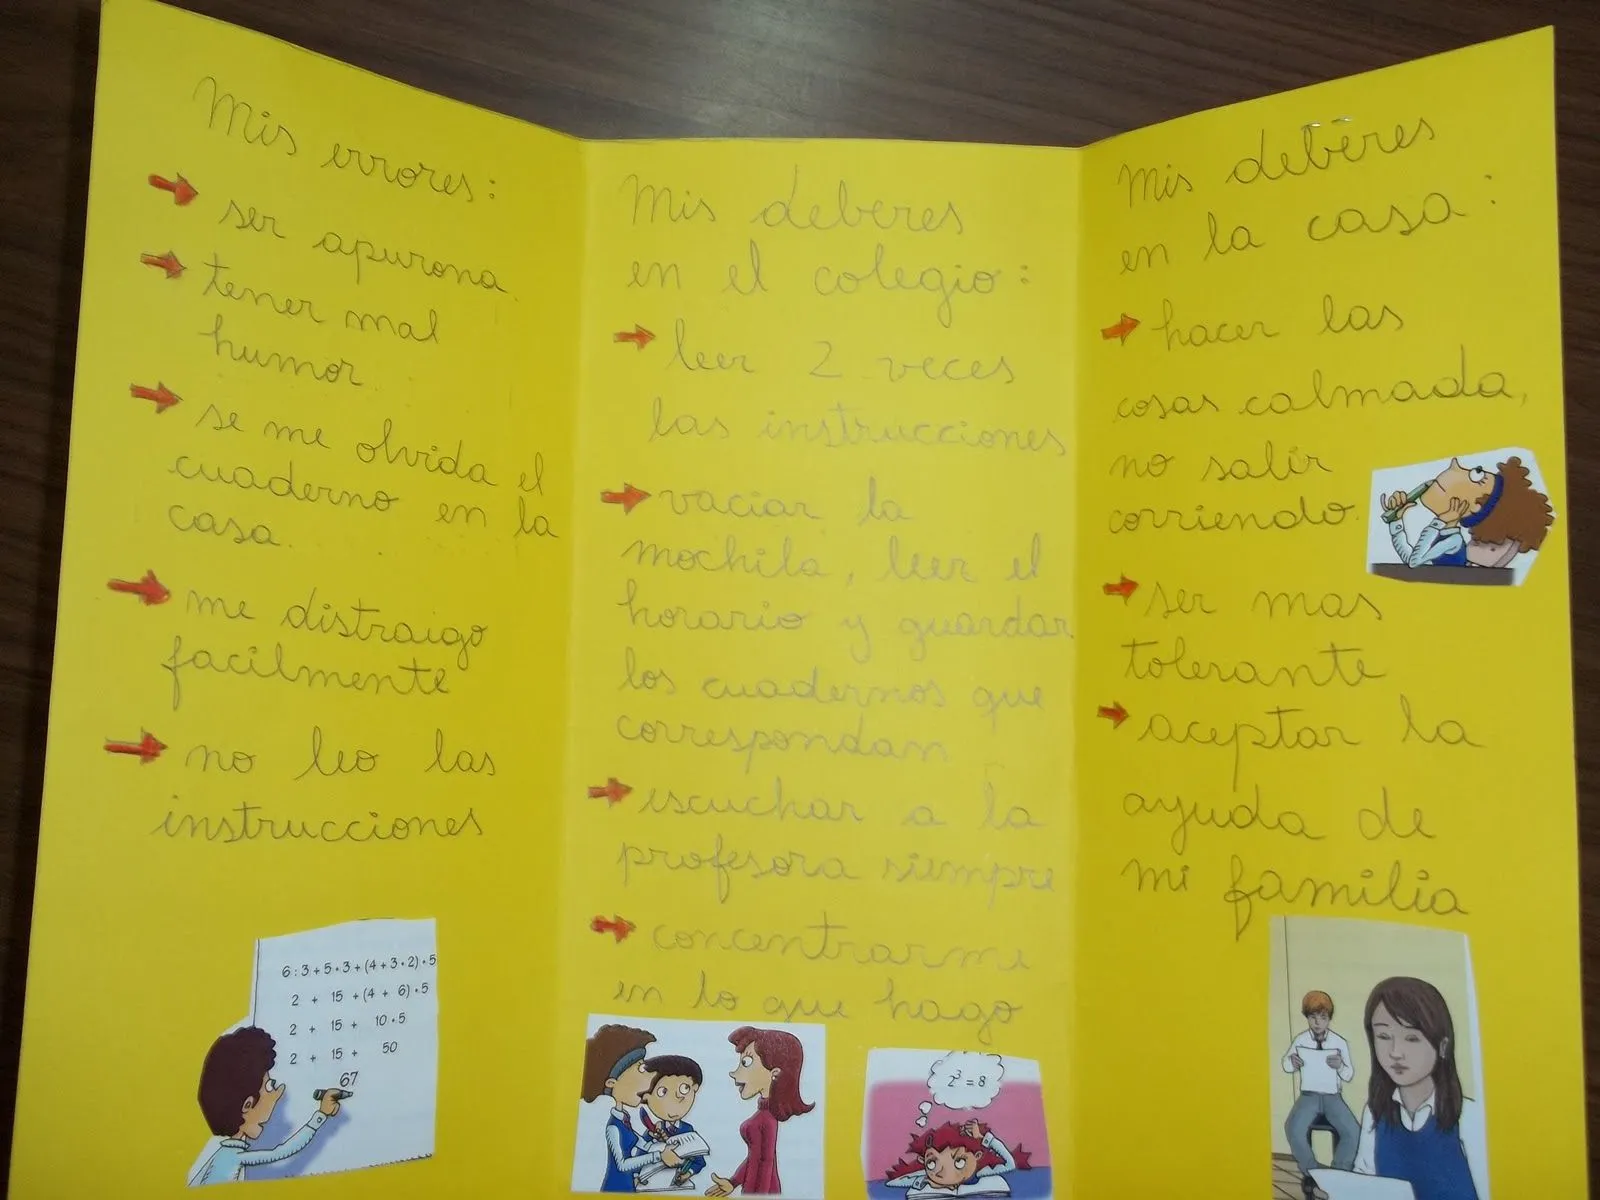 Mis errores:
ser apurona.
tener mal
humor.
se me olvida el
cuaderno en la
casa.
me distraigo
facilmente
no leo las
instrucciones
6:3+5·3+(4+3·2)·5
2 + 15 +(4 + 6)·5
2 + 15 + 10·5
2 + 15 + 50
67
Mis deberes
en el colegio:
leer 2 veces
las instrucciones
vaciar la
mochila, leer el
horario y guardar
los cuadernos que
correspondan
escuchar a la
profesora siempre
concentrarme
en lo que hago
2³=8
Mis deberes
en la casa:
hacer las
cosas calmada,
no salir
corriendo.
ser mas
tolerante
aceptar la
ayuda de
mi familia